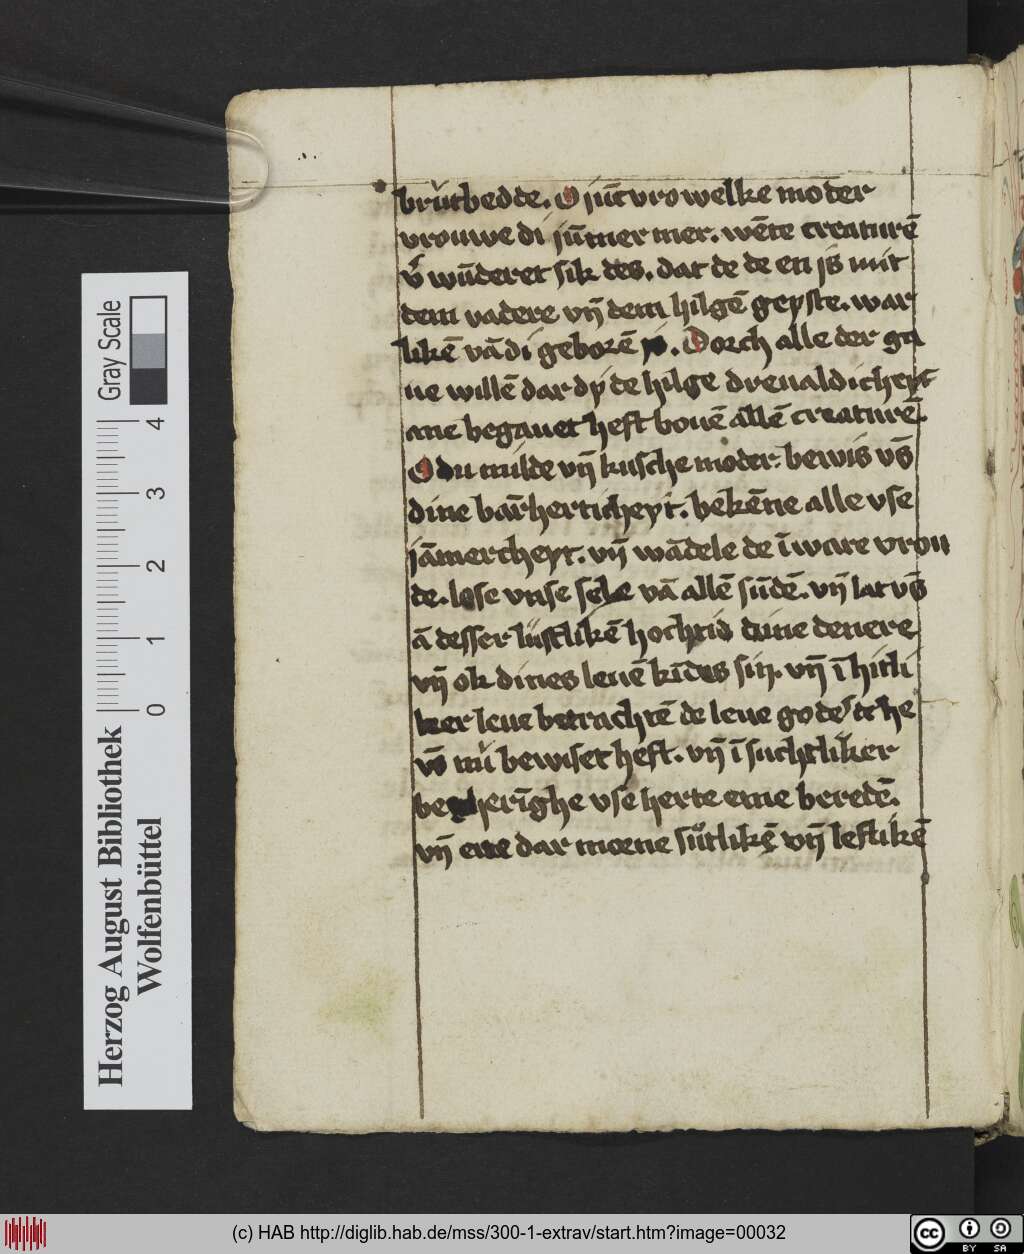 brůtbedde. O jūcvrowelke moder
vrouwe di jūmer mer. wēte creaturē
v̄ wūderet sik des. dat de de en is mit
dem vadere vn̄ dem hilgē geyste. war
likē vā di geborē is. Dorch alle der ga
ue willē dar dy de hilge dreualdicheyt
ane begauet heft bouē allē creaturē.
O du milde vn̄ kusche moder. bewis vs̄
dine bar̄herticheyt. bekēne alle vse
jāmercheyt. vn̄ wādele de ī ware vrou
de. lose vnse sele vā allē sūdē. vn̄ lat vs̄
ā desser lustlikē hochtid dine denere
vn̄ ok dines leuē kīdes sin. vn̄ ī hitli
ker leue betrachtē de leue godes de he
vs̄ nu bewiset heft. vn̄ ī suchtliker
herīghe vse herte eme beredē.
vn̄ ene dar mede sůtlikē vn̄ leflikē
Herzog August Bibliothek
Wolfenbüttel
Gray Scale
0 1 2 3 4
(c) HAB http://diglib.hab.de/mss/300-1-extrav/start.htm?image=00032
cc BY SA